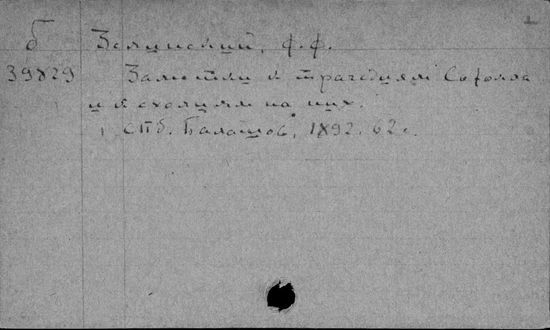 б Зелинский, Ф. Ф.
39829 Заметки к трагедиям Софокла
и к схолиям на них.
СПб. Балашов, 1892. 62 с.